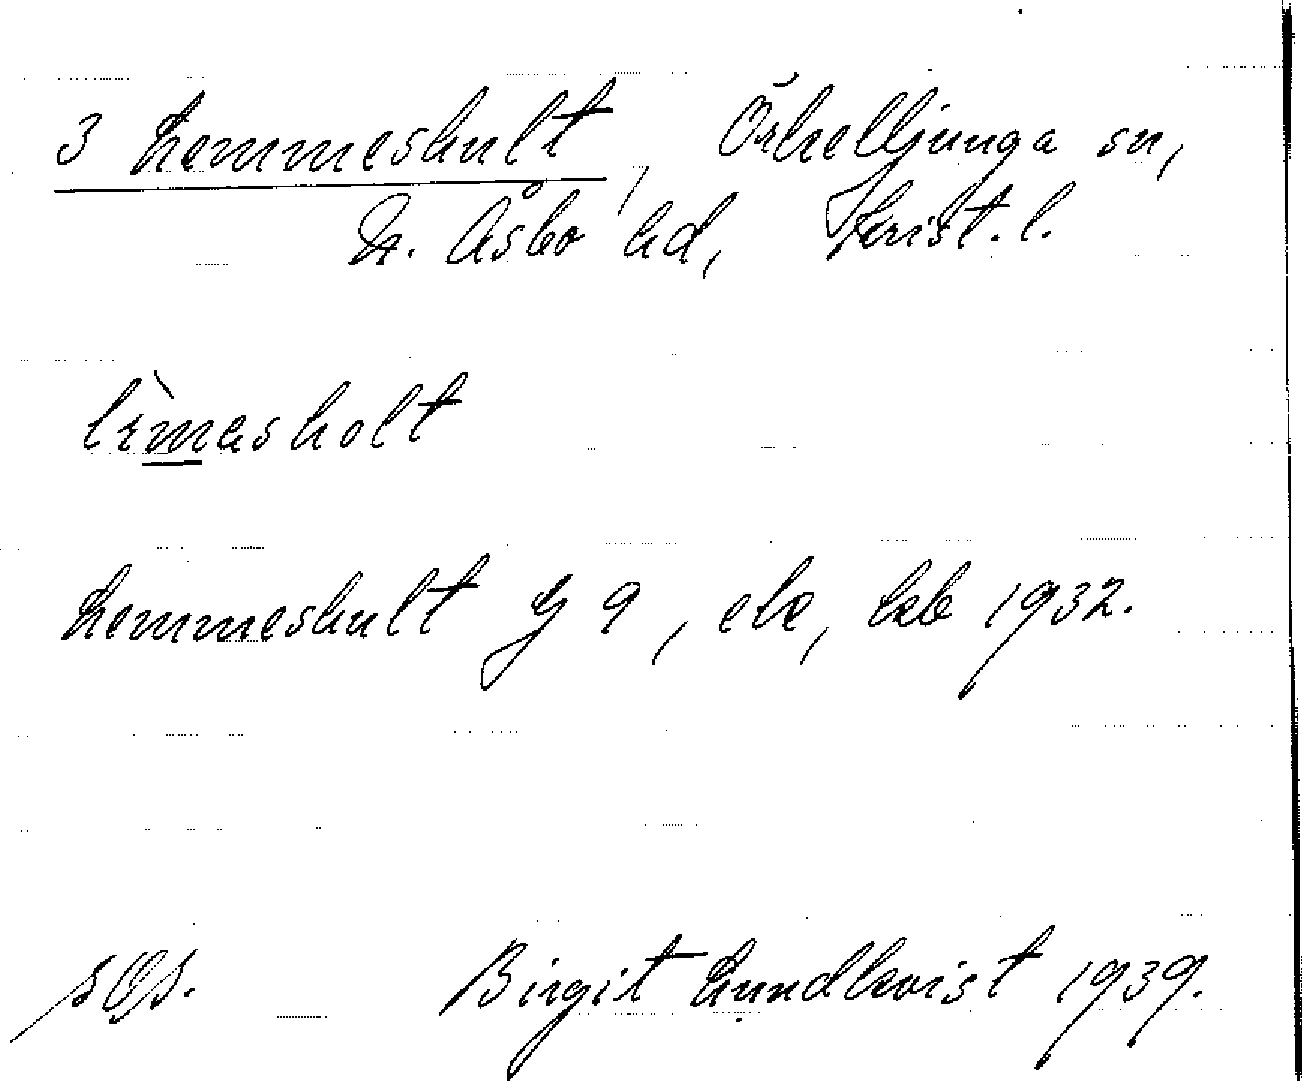 3 Lemmeshult, Örkelljunga sn,
N. Åsbo hd, Krist. l.
lèmasholt
Lemmeshult G 9, ek, 1932.
Birgit Lundkvist 1939.